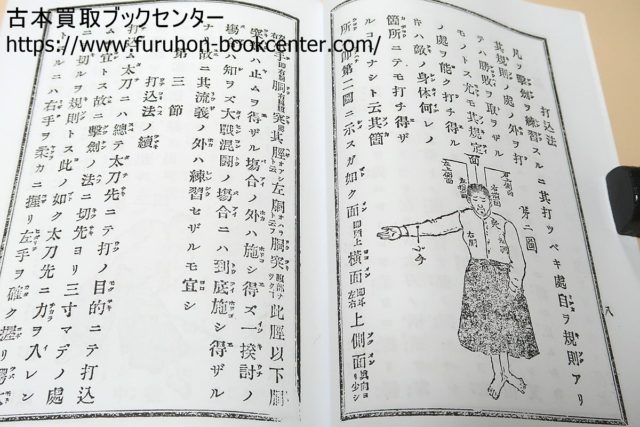 古本買取ブックセンター
https://www.furuhon-bookcenter.com/
打込法
凡ソ撃剣ヲ練習スルニ其打ツベキ處自ヲ規則アリ
規則ノ處ノ外ヲ打
テハ勝敗ヲ取ヲザル
モノトス尤モ其規定
ノ處ヲ能ク打チ得ル
片ハ敵ノ身体何レノ
箇所ニテモ打チ得ザ
ルコナシト云其箇
所ハ第二圖ニ示スガ如ク面 横面 上側面
第二圖
面
右胴
小手
八
右手 胴 突 其脛 左胴 胴突 此脛以下胴
突ハ止ムヲ得ザル塲合ノ外ハ施シ得ズ一揆討ノ
塲合ハ知ヲズ大戰混閙ノ塲合ニハ到底施シ得ザル
ナ故ニ其流義ノ外ハ練習セザルモ宜シ
第三節
打込法ノ續
打込ム太刀ニハ總テ太刀先ニテ打ノ目的ニテ打込
ムヲ宜トス故ニ擊劍ノ法ニ切先ヨリ三寸マデノ處
ニテ切ルヲ規則トス此ノ如ク太刀先ニ力ヲ入レン
トスルニハ右手ヲ柔カニ握リ左手ヲ確ク握リ